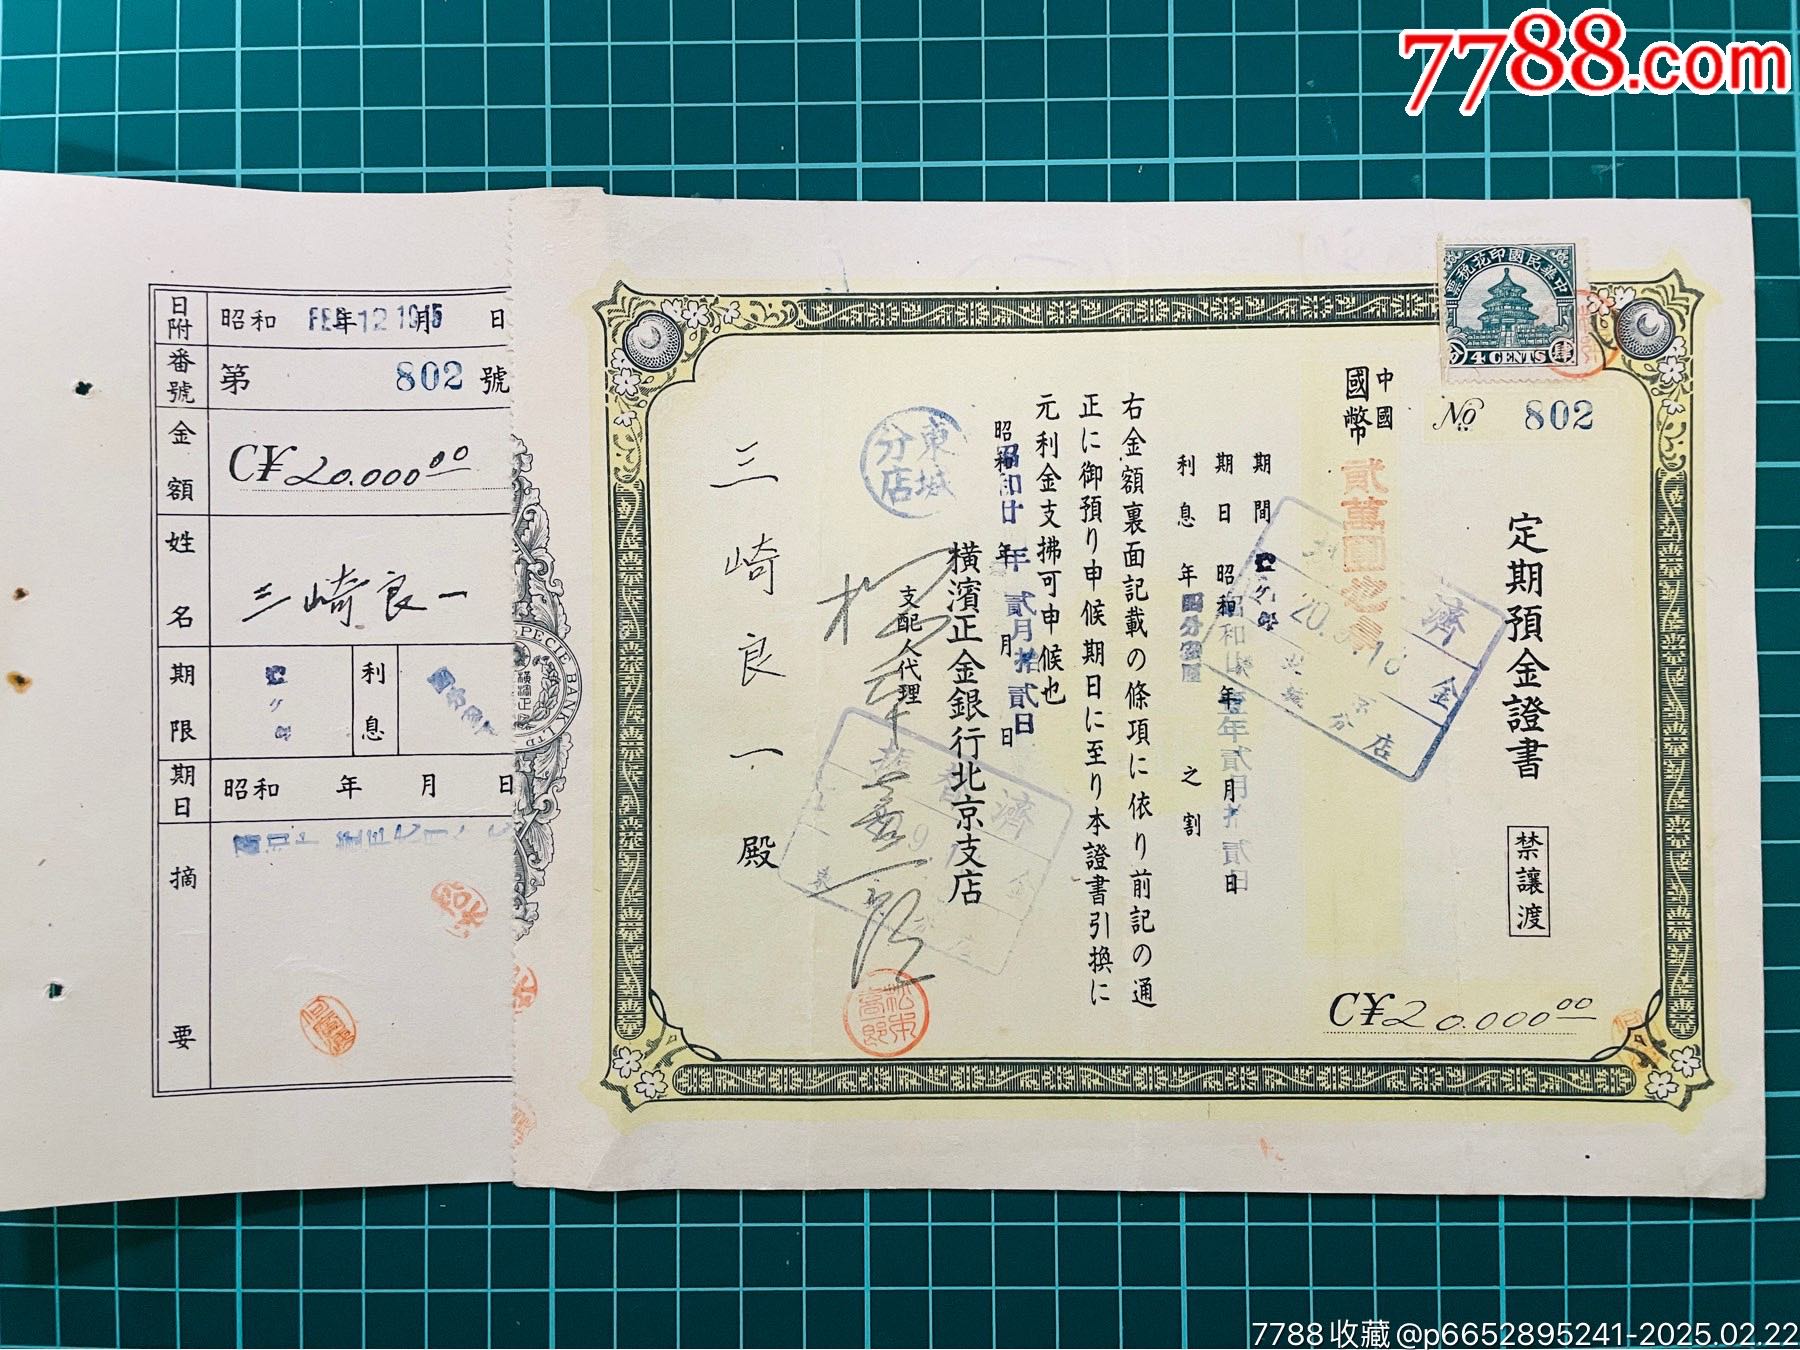 7788.com
中華民國印花稅票
4 CENTS
№ 802
定期預金證書
禁讓渡
中國
國幣
貳萬圓也
C¥20.000⁰⁰
期間
期日 昭和 年 月 日
利息 年 之割
右金額裏面記載の條項に依り前記の通
正に御預り申候期日に至り本證書引換に
元利金支拂可申候也
昭和 年 月 日
昭和廿年貳月拾貳日
橫濱正金銀行北京支店
支配人代理
東城
分店
三崎良一殿
濟
日附 昭和 年 月 日
FEB 12 1945
番號 第 802 號
金額 C¥20.000⁰⁰
姓名 三崎良一
期限
利息
期日 昭和 年 月 日
摘要
SPECIE BANK LTD
7788收藏@p6652895241-2025.02.22